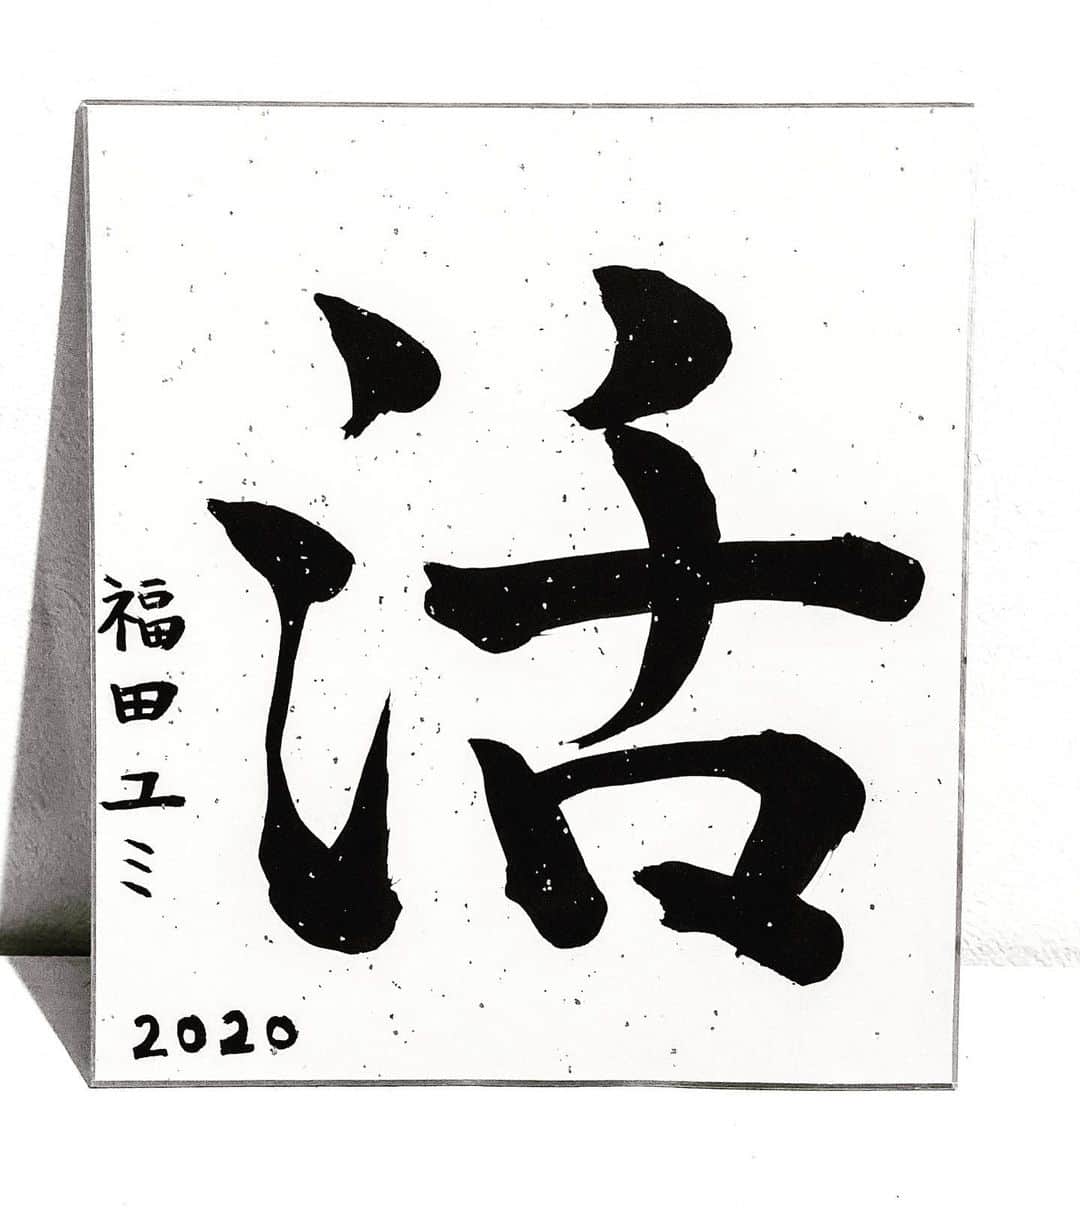 活
福田ユミ
2020